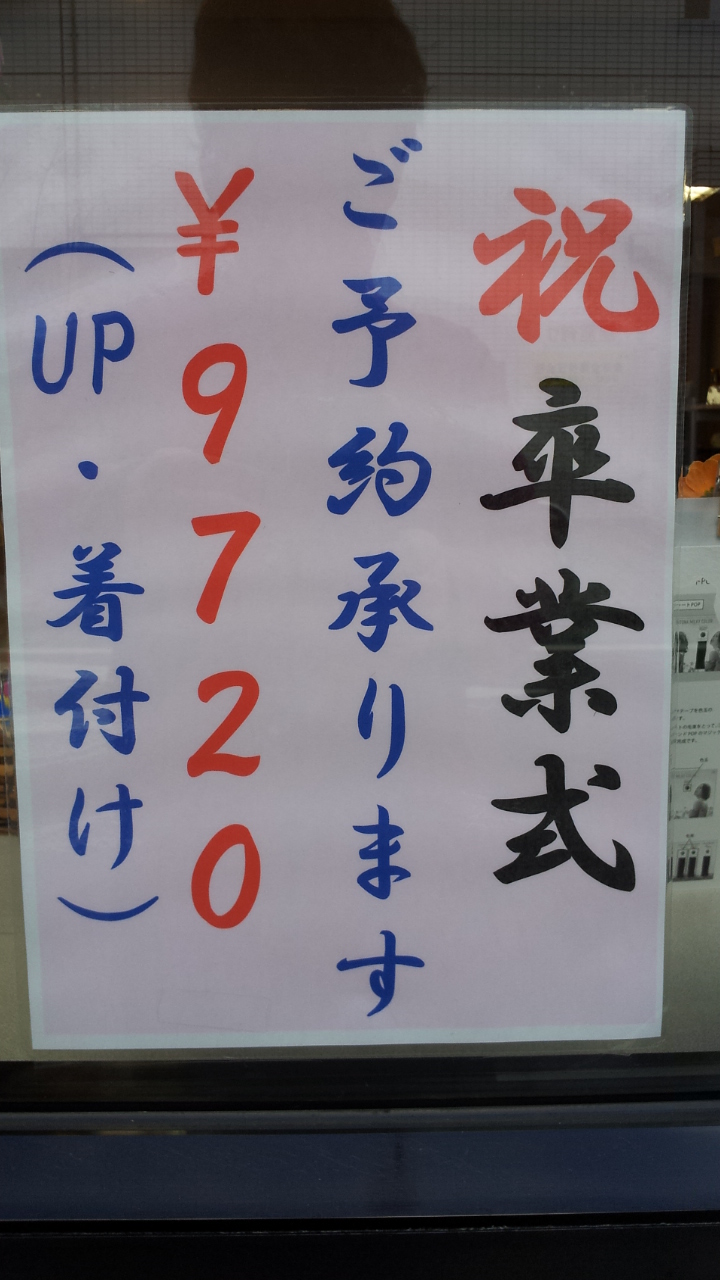 祝卒業式
ご予約承ります
¥9720
（UP・着付け）